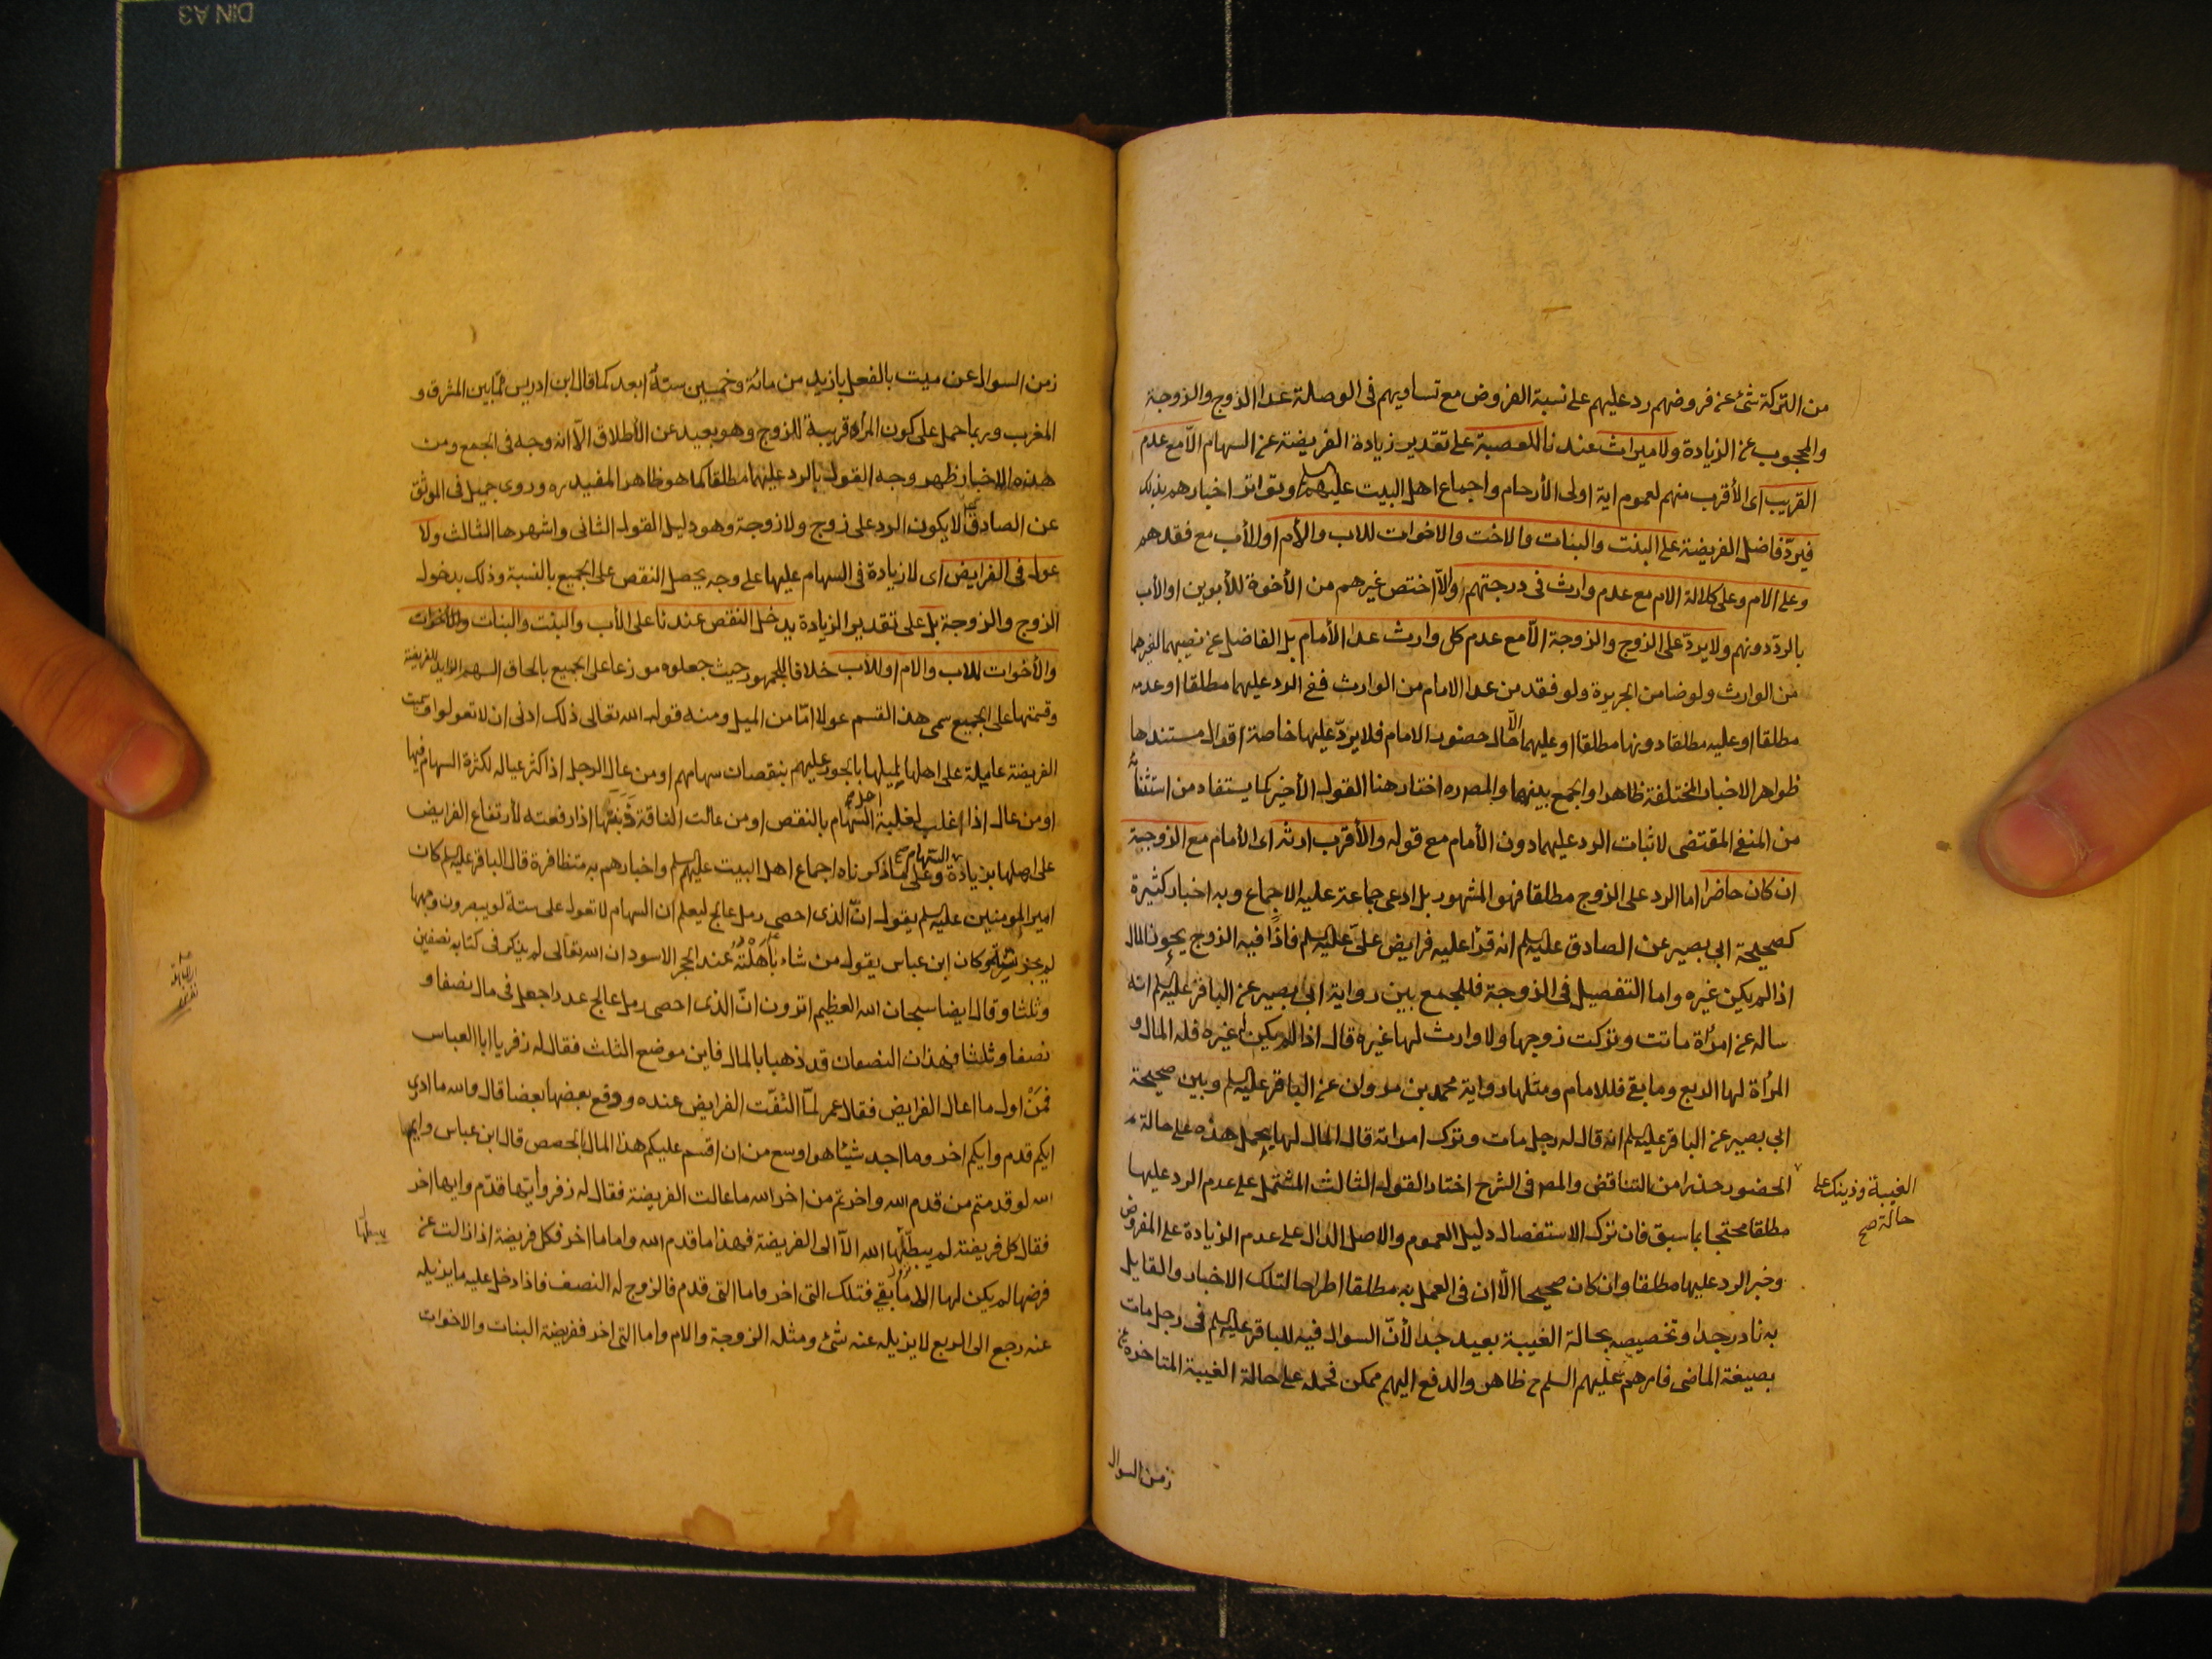 من التركة شئ عن فروضهم رد عليهم على نسبة الفروض مع تساويهم فى الوصلة عدا الزوج والزوجة
والمحجوب عن الزيادة ولا ميراث عندنا للعصبة على تقدير زيادة الفريضة عن السهام الا مع عدم
القريب اى الأقرب منهم لعموم اية اولى الأرحام واجماع اهل البيت عليهم السلم وتواتر اخبارهم بذلك
فيردّ فاضل الفريضة على البنت والبنات والاخت والاخوات للاب والأم او للأب مع فقدهم
وعلى الام وعلى كلالة الام مع عدم وارث فى درجتهم والاّ اختص غيرهم من الأخوة للأبوين او الأب
بالردّ دونهم ولا يردّ على الزوج والزوجة الاّ مع عدم كل وارث عدا الأمام بل الفاضل عن نصيبهما لغيرهما
من الوارث ولو ضامن الجريرة ولو فقد من عدا الامام من الوارث ففى الرد عليهما مطلقا او عدمه
مطلقا او عليه مطلقا دونها مطلقا او عليهما الّا حال حضور الامام فلا يردّ عليها خاصة اقوال مستندها
ظواهر الاخبار المختلفة ظاهرا والجمع بينهما والمص ره اختار هنا القول الأخير كما يستفاد من استثنائه
من المنفى المقتضى لاثبات الرد عليهما دون الأمام مع قوله والأقرب ارثه اى الأمام مع الزوجة
ان كان حاضرا اما الرد على الزوج مطلقا فهو المشهور بل ادعى جماعة عليه الاجماع وبه اخبار كثيرة
كصحيحة ابى بصير عن الصادق عليه السلم انه قرأ عليه فرايض علىّ عليه السلم فاذا فيه الزوج يحوز المال
اذا لم يكن غيره واما التفصيل فى الزوجة فللجمع بين رواية ابى بصير عن الباقر عليه السلم انه
ساله عن امرأة ماتت وتركت زوجها ولا وارث لها غيره قال اذا لم يكن غيره فله المال و
المرأة لها الربع وما بقى فللامام ومثلها رواية محمد بن مروان عن الباقر عليه السلم وبين صحيحة
ابى بصير عن الباقر عليه السلم انه قال له رجل مات وترك امراته قال المال لها يحمل هذه على حالة
الغيبة وذينك على
حالة صح
الحضور حذرا من التناقض والمص فى الشرح اختار القول الثالث المشتمل على عدم الرد عليها
مطلقا محتجا بما سبق فان ترك الاستفصال دليل العموم والاصل الدال على عدم الزيادة على المفروض
وخبر الرد عليها مطلقا وان كان صحيحا الّا ان فى العمل به مطلقا اطراحا لتلك الاخبار والقايل
به نادر جدا وتخصيصه بحالة الغيبة بعيد جدا لأنّ السوال فيه للباقر عليه السلم فى رجل مات
بصيغة الماضى فامرهم عليهم السلم ح ظاهر والدفع اليهم ممكن فحمله على حالة الغيبة المتاخرة عن
زمن السوال
زمن السوال عن ميت بالفعل بازيد من مائة وخمسين سنة ابعد كما قال ابن ادريس ممّا بين المشرق و
المغرب وربما حمل على كون المرأة قريبة للزوج وهو بعيد عن الأطلاق الاّ انه وجه فى الجمع ومن
هذه الاخبار ظهر وجه القول بالرد عليهما مطلقا كما هو ظاهر المفيد ره وروى جميل فى الموثق
عن الصادق لا يكون الرد على زوج ولا زوجة وهو دليل القول الثانى واشهرها الثالث ولا
عول فى الفرايض اى لا زيادة فى السهام عليها على وجه يحصل النقص على الجميع بالنسبة وذلك بدخول
الزوج والزوجة بل على تقدير الزيادة يدخل النقص عندنا على الأب والبنت والبنات والأخوات
والأخوات للاب والام او للأب خلافا للجمهور حيث جعلوه موزعا على الجميع بالحاق السهم الزايد للفريضة
وقسمتها على الجميع سمى هذا القسم عولا امّا من الميل ومنه قوله الله تعالى ذلك ادنى ان لا تعولوا وسميت
الفريضة عايلة على اهلها لميلها بالجور عليهم بنقصان سهامهم او من عال الرجل اذا كثر عياله لكثرة السهام فيها
او من عال اذا اغلب لغلبة اهل السهام بالنقص او من عالت الناقة ذنبها اذا رفعته لأرتفاع الفرايض
على اصلها بزيادة السهام وعلى ما ذكرناه اجماع اهل البيت عليهم السلم واخبارهم به متظافرة قال الباقر عليه السلم كان
امير المومنين عليه السلم يقول انّ الذى احصى رمل عالج ليعلم ان السهام لا تعول على ستة لو يبصرون وجهها
لم يجز ستة وكان ابن عباس يقول من شاء باهلته عند الحجر الاسود ان الله تعالى لم يذكر فى كتابه نصفين
وثلثا وقال ايضا سبحان الله العظيم اترون انّ الذى احصى رمل عالج عددا جعل فى مال نصفا و
نصفا وثلثا فهذان النصفان قد ذهبا بالمال فاين موضع الثلث فقال له زفر يا ابا العباس
فمَنْ اول ما اعال الفرايض فقال عمر لمّا التفّت الفرايض عنده ودفع بعضها بعضا قال والله ما ادرى
ايكم قدم وايكم اخر وما اجد شيئا هو اوسع من ان اقسم عليكم هذا المال بالحصص قال ابن عباس وايم
الله لو قدمتم من قدم الله واخرتم من اخر الله ما عالت الفريضة فقال له زفر وايّها قدّم وايها اخر
فقال كل فريضة لم يهبطها الله الاّ الى الفريضة فهذا ما قدم الله واما ما اخر فكل فريضة اذا زالت عن
فرضها لم يكن لها الا ما بقى فتلك التى اخر فاما التى قدم فالزوج له النصف فاذا دخل عليه ما يزيله
عنه رجع الى الربع لا يزيله عنه شئ ومثله الزوجة والام واما التى اخر ففريضة البنات والاخوات